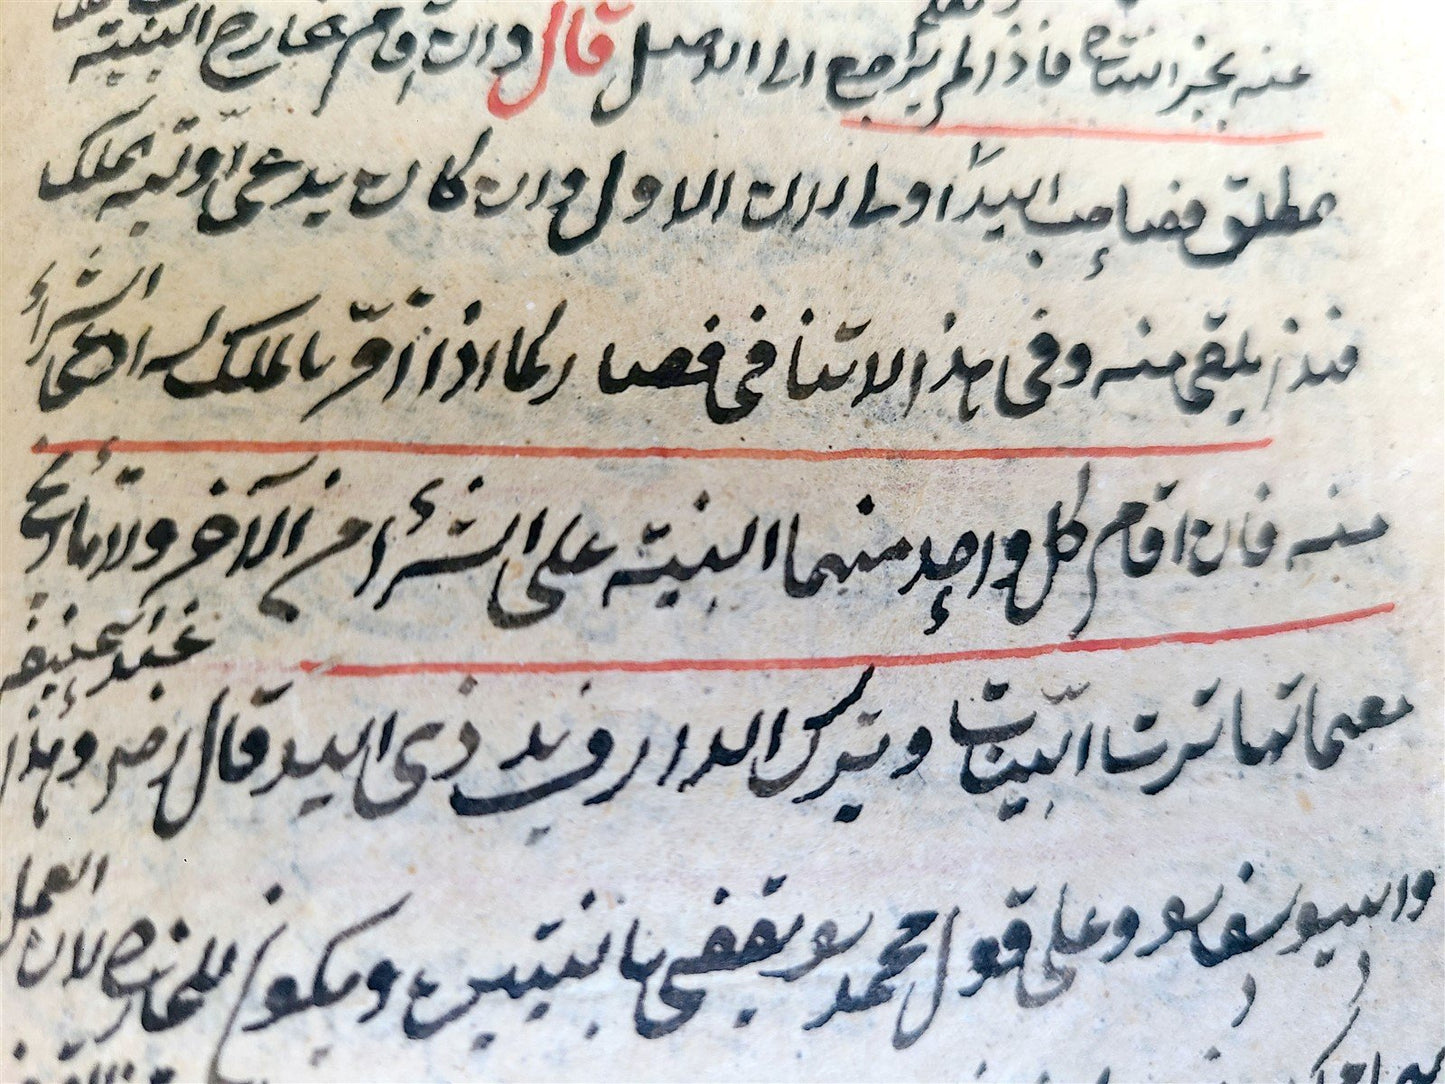 عنه بخبر النتاج فاذا لم يترجح الى الاصل قال وان اقام خارج البينة
مطلق فصاحب اليد اولى لان الاول وان كان يدعى اولية الملك
فهذا يلقى منه وفى هذا لا تنافى فصار كما اذا اقر بالملك له ادعى الشراء
منه فان اقام كل واحد منهما البينة على الشراء من الآخر ولا تاريخ
معهما تهاترت البينات ويترك الدار فى يد ذى اليد قال رض وهذا عند ابيحنيفة
وابييوسف وعلى قول محمد يقضى بالبينتين ويكون للخارج لان العمل